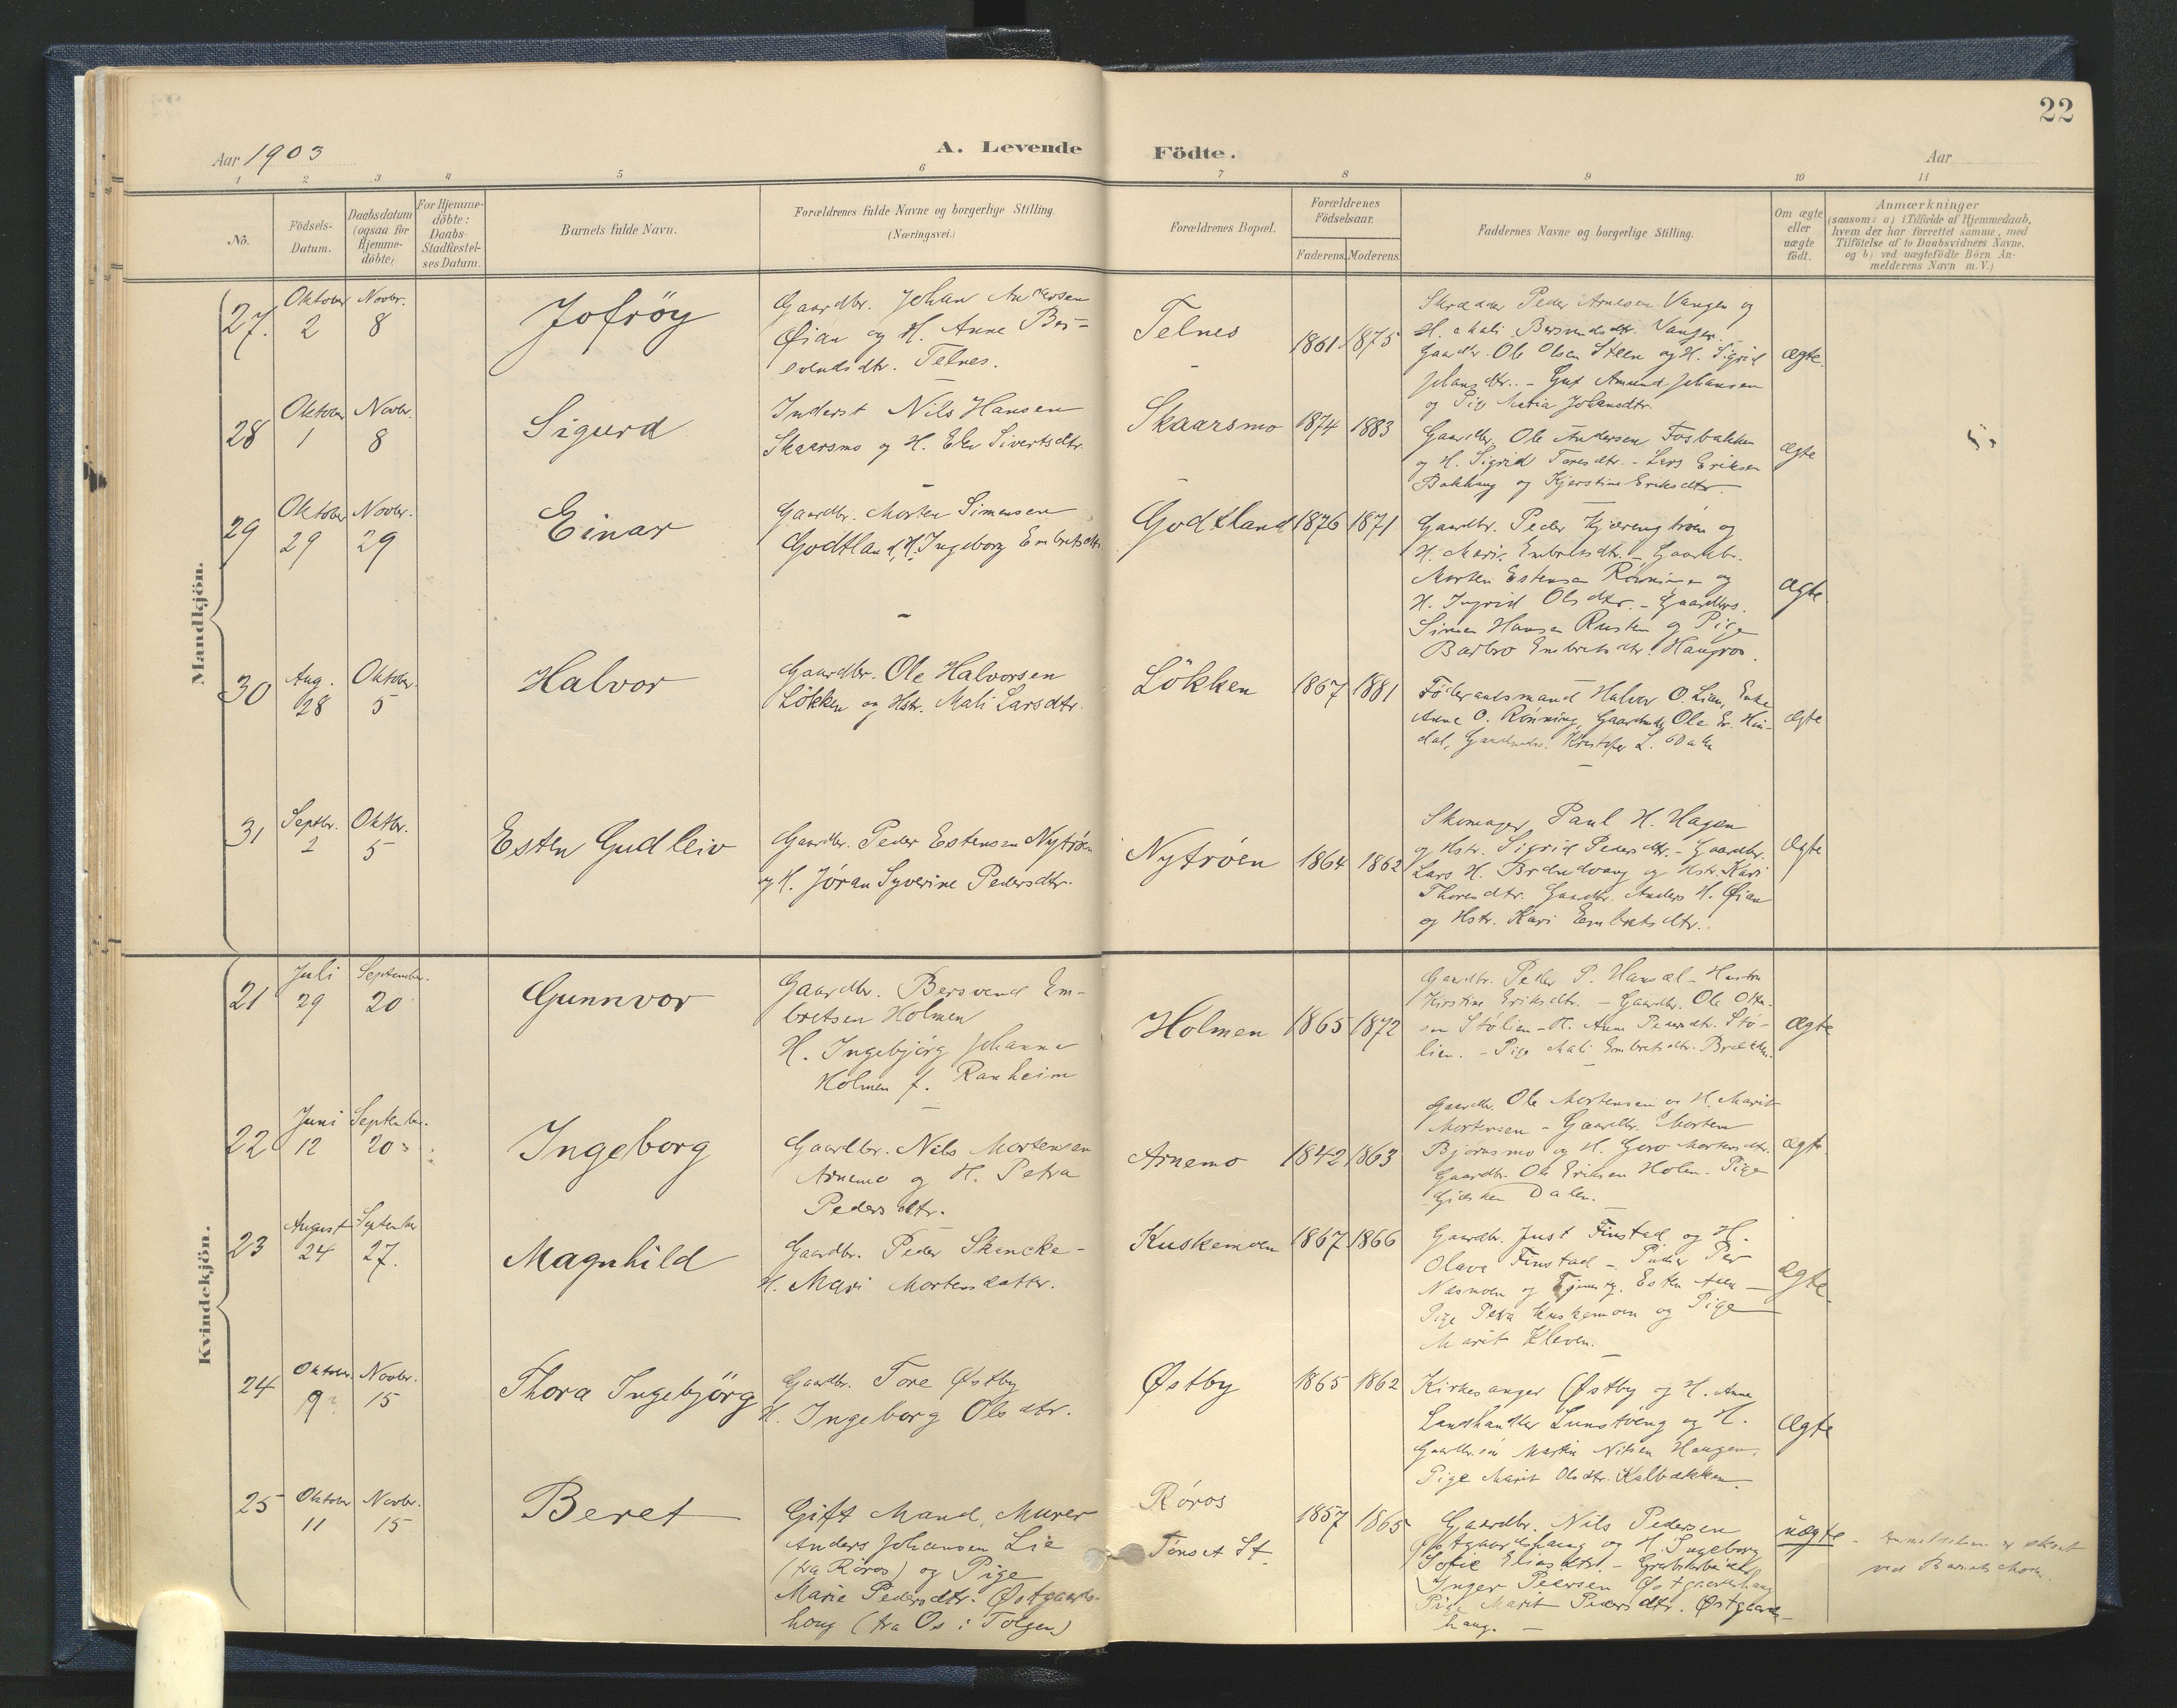 22
Aar 1903
A. Levende Födte.
Aar
1 2 3 4 5 6 7 8 9 10 11
No.
Födsels-Datum.
Daabsdatum (ogsaa for Hjemme-döbte)
For Hjemme-döbte: Daabs-Stadfæstel-ses Datum.
Barnets fulde Navn.
Forældrenes fulde Navne og borgerlige Stilling. (Næringsvei.)
Forældrenes Bopæl.
Forældrenes Födselsaar.
Faderens. Moderens.
Faddernes Navne og borgerlige Stilling.
Om ægte eller uægte födt.
Anmærkninger
(saasom: a) i Tilfælde af Hjemmedaab,
hvem der har forrettet samme, med
Tilföielse af to Daabsvidners Navne,
og b) ved uægtefödte Börn An-
melderens Navn m. V.)
Mandkjön.
27. Oktober 2 Novbr. 8
Jofröy
Gaardbr. Johan
Øian og H. Anne Ber-
svendsdtr. Telnes.
Telnes
1861 1875
Peder Arnesen Vangen og
H. Mali Bersvendsdtr. Vangen
Gaardbr. Ole Olsen Steen og H. Sigrid
Johansdtr. - Gut Amund Johansen
og Pige Maria Johansdtr.
ægte.
28 Oktober 1 Novbr. 8
Sigurd
Inderst Nils Hansen
Skaarsmo og H. Eli Sivertsdtr.
Skaarsmo
1874 1883
Gaardbr. Ole Andersen Fosbakken
og H. Sigrid Toresdtr. - Lars Eriksen
Bakhaug og Kjerstine Eriksdtr.
ægte
29 Oktober 29 Novbr. 29
Einar
Gaardbr. Morten Simensen
Godtland, H. Ingeborg Embretsdtr.
Godtland
1876 1871
Gaardbr. Peder Kjærengtrøen og
H. Mari Embretsdtr. - Gaardbr.
Morten Estensen Rønningen og
H. Ingrid Olsdtr. - Gaardbrs.
Simen Hansen Rusten og Pige
Barbro Embretsdtr. Haugros.
ægte.
30 Aug. 28 Oktober 5
Halvor
Gaardbr. Ole Halvorsen
Lökken og Hstr. Mali Larsdtr.
Lökken
1867 1881
Föderaadsmand Halvor O. Lian, Enke
Anne O. Rönning, Ole Er. Hin-
dal, Kristofer L. Dalen
ægte
31 Septbr. 2 Oktbr. 5
Esten Gudleiv
Gaardbr. Peder Estensen Nytröen
og H. Jöran Syverine Pedersdtr.
Nytröen
1864 1862
Skomager Paul H. Hagen
og Hstr. Sigrid Pedersdtr. - Gaardbr.
Lars H. Brændvang og Hstr. Kari
Thoresdtr. Gaardbr. Anders H. Øian
og Hstr. Kari Embretsdtr.
ægte
Kvindekjön.
21 Juli 29 September 20
Gunnvor
Gaardbr. Bersvend Em-
bretsen Holmen
H. Ingebjörg Johanne
Holmen f. Ranheim
Holmen
1865 1872
Gaardbr. Peder P. - Hustru
Kirstine Eriksdtr. - Gaardbr. Ole
Stölien - H. Anne Pedersdtr. Stö-
lien. - Pige Mali Embretsdtr. Brækken.
ægte
22 Juni 12 September 20
Ingeborg
Gaardbr. Nils Mortensen
Arnemo og H. Petra
Pedersdtr.
Arnemo
1842 1863
Gaardbr. Ole Mortensen og H. Marit
Mortensen - Gaardbr. Morten
Bjørnsmo og H. Goro Mortensdtr.
Gaardbr. Ole Eriksen Holen - Pige
Gjertrud Dalen.
ægte
23 August 24 September 27.
Magnhild
Gaardbr. Peder Skancke -
H. Mari Mortensdatter.
Kuskemoen
1867 1866
Gaardbr. Just Finstad og H.
Olava Finstad - Per
Næsmoen og Esten Aaen -
Pige Petra Kuskemoen og Pige
Marit Kleven.
ægte.
24 Oktober 9 Novbr. 15
Thora Ingebjörg
Gaardbr. Tore Østby
H. Ingeborg Olsdtr.
Østby
1865 1862
Kirkesanger Østby og H. Anne
Landhandler Lunstøeng og H.
Gaardbr.sön Martin Nilsen Haugen,
Pige Marit Olsdtr. Kalbækken
ægte
25 Oktober 11 Novbr. 15
Beret
Gift Mand, Murer
Anders Johansen Lie
(fra Röros) og Pige
Marie Pedersdtr. Østgaards-
haug (fra Os i Tolgen)
Röros
Tönset St.
1857 1865
Gaardbr. Nils Pedersen
Østgaardshaug og H. Ingeborg
Sofie Eliasdtr. - Grubearbeider
Inger Pedersen Østgaardshaug
Pige Marit Pedersdtr. Østgaards-
haug.
uægte - Anmeldelsen er skeet
ved Barnets Moder.